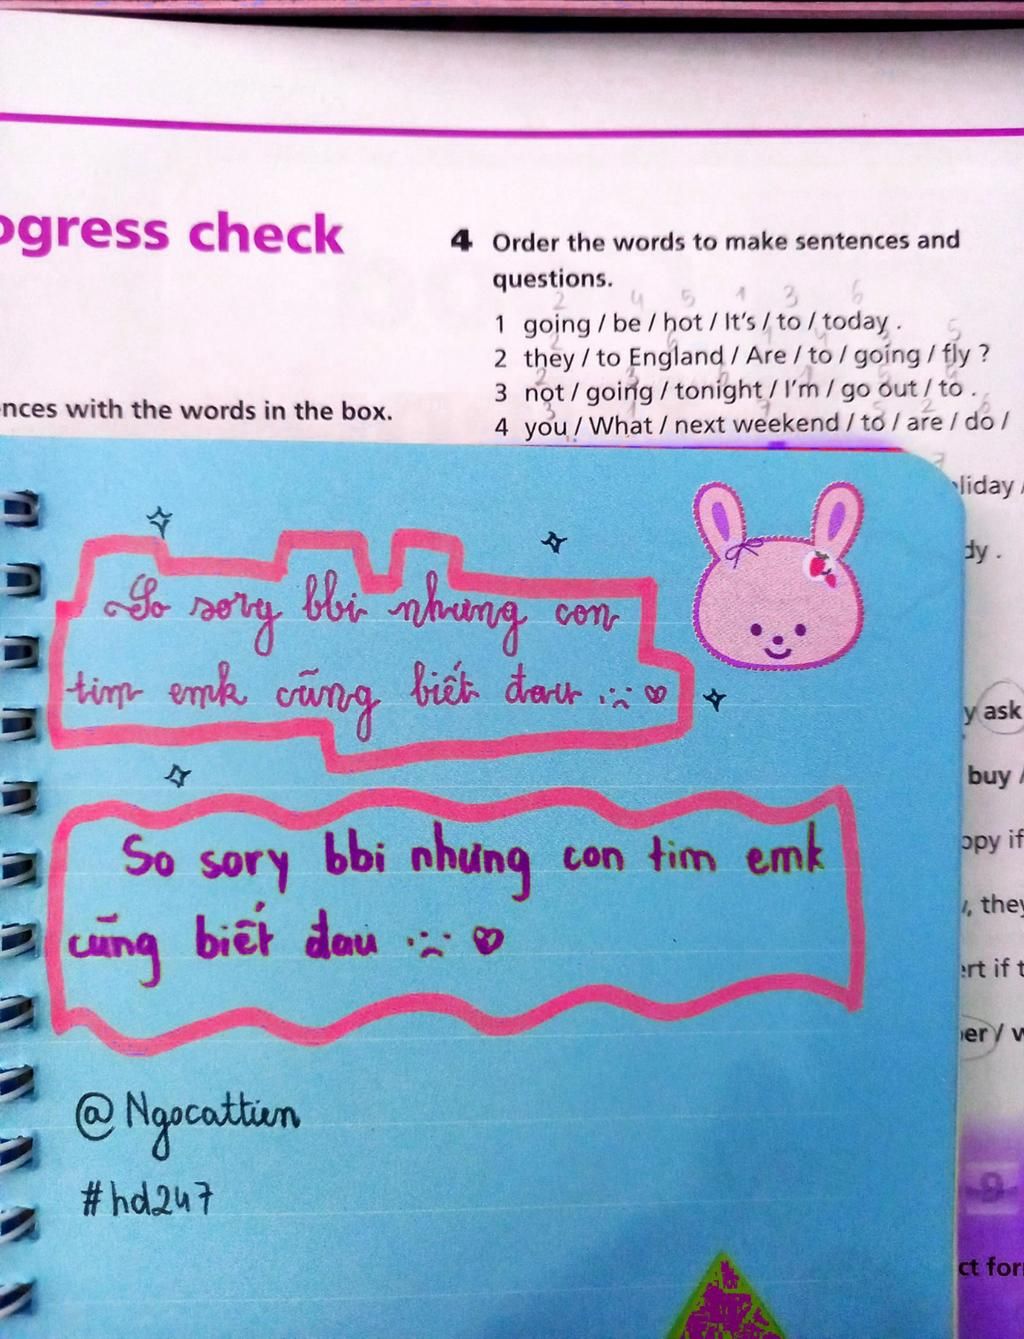 ogress check
nces with the words in the box.
4 Order the words to make sentences and
questions.
2 4 5 1 3 6
1 going / be / hot / It's / to / today .
2 they / to England / Are / to / going / fly ?
3 not / going / tonight / I'm / go out / to .
4 you / What / next weekend / to / are / do /
liday /
dy .
y ask
buy /
ppy if
, they
ert if t
er / w
9
ct for
So sory bbi nhưng con
tim emk cũng biết đau .:︵:. ♡
So sory bbi nhưng con tim emk
cũng biết đau .:︵:. ♡
@Ngocattien
#hd247